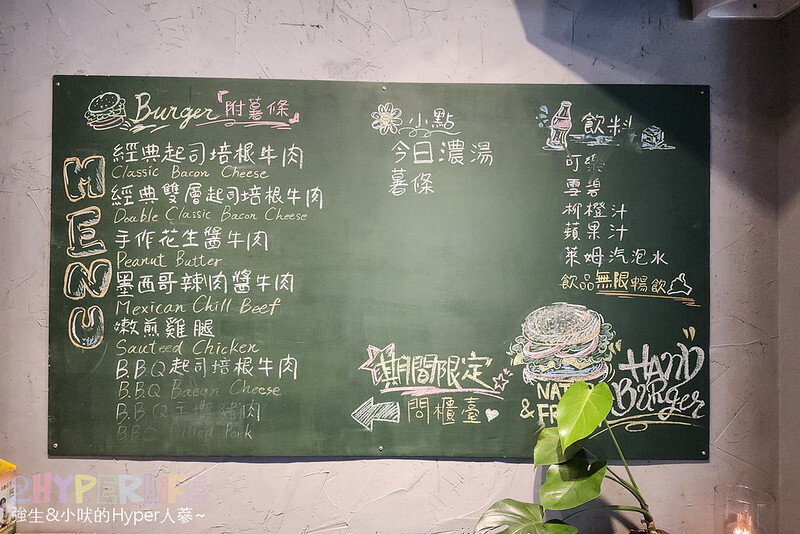 MENU
Burger「附薯條」
經典起司培根牛肉
Classic Bacon Cheese
經典雙層起司培根牛肉
Double Classic Bacon Cheese
手作花生醬牛肉
Peanut Butter
墨西哥辣肉醬牛肉
Mexican Chill Beef
嫩煎雞腿
Sauteed Chicken
BBQ起司培根牛肉
B.B.Q Bacon Cheese
B.B.Q手撕豬肉
BBQ Pulled Pork
小點
今日濃湯
薯條
飲料
可樂
雪碧
柳橙汁
蘋果汁
萊姆汽泡水
飲品無限暢飲
期間限定
問櫃臺
&
HAND
Burger
2HYPERLIFE
強生&小吠的Hyper人蔘~